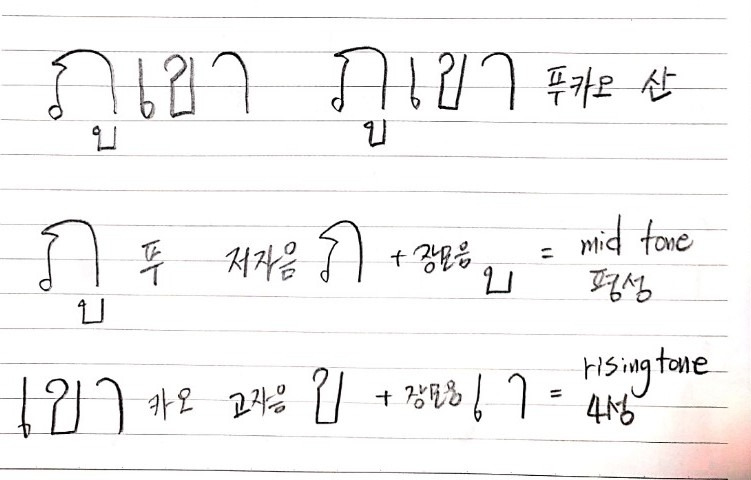 ภูเขา ภูเขา 푸카오 산
ภู 푸 저자음 ภ + 장모음 ู = mid tone
평성
เขา 카오 고자음 ข + 장모음 เ า = rising tone
4성